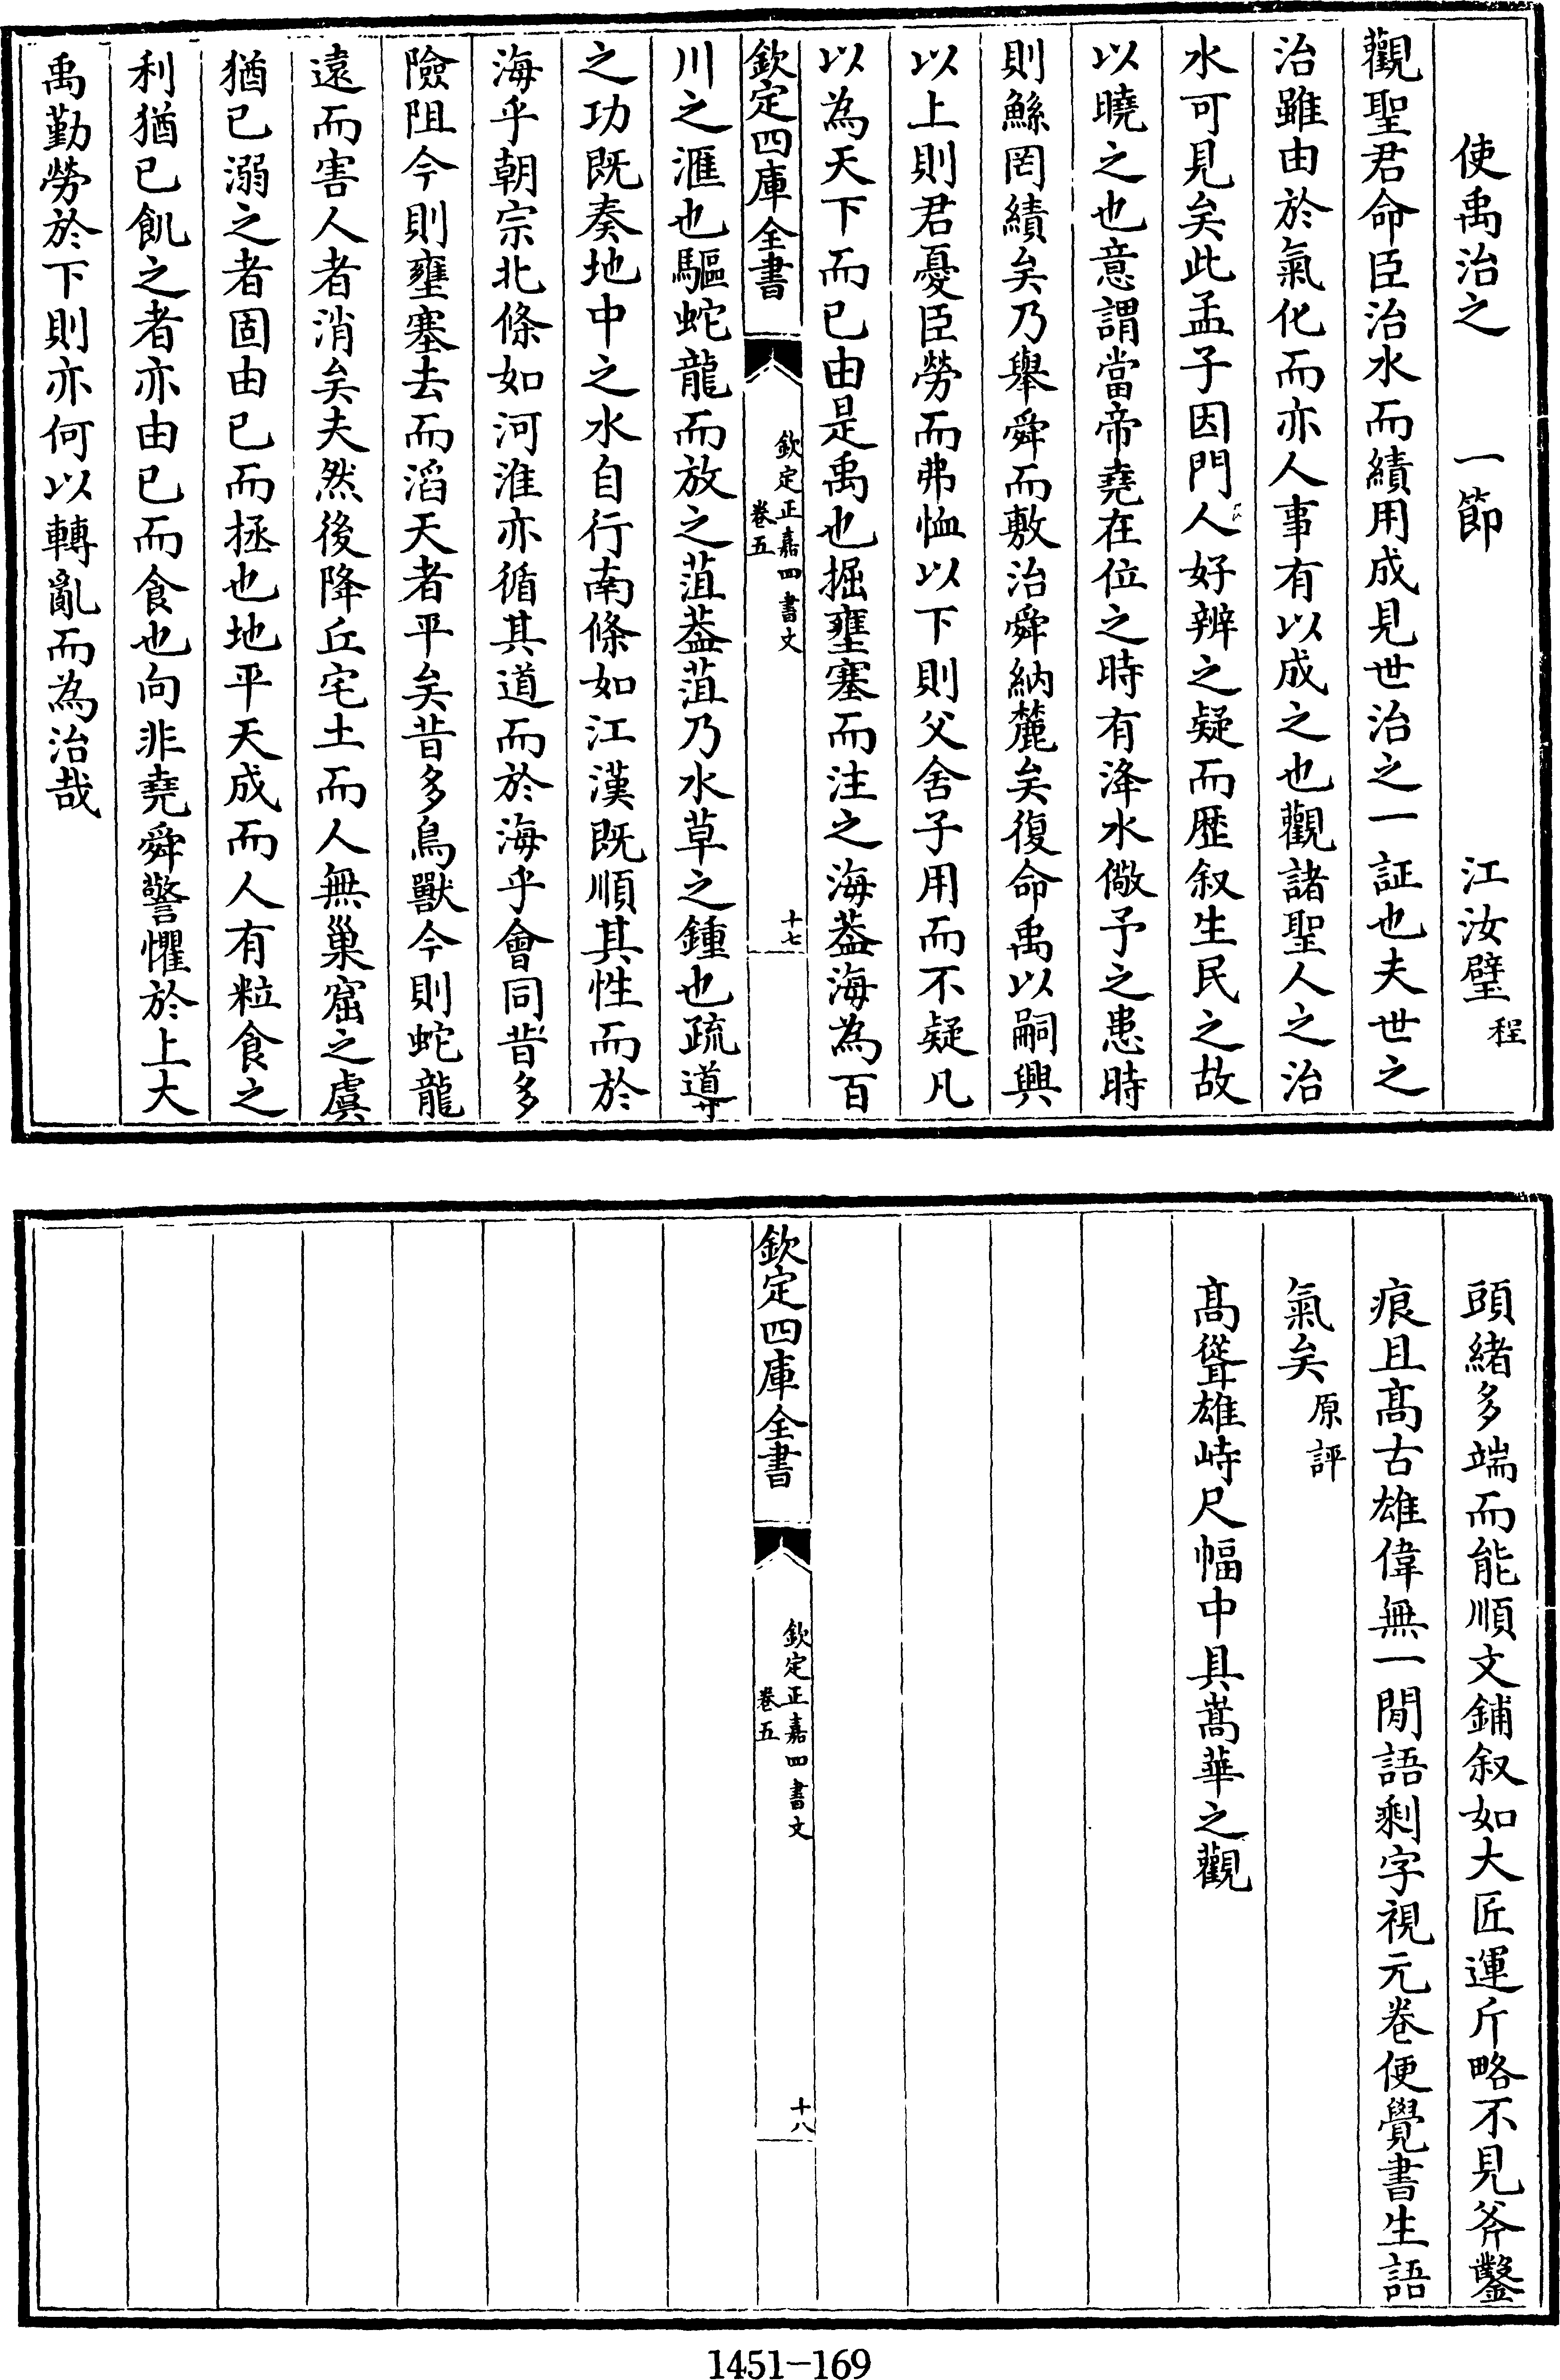 使禹治之　一節　江汝璧程
觀聖君命臣治水而績用成見世治之一証也夫世之
治雖由於氣化而亦人事有以成之也觀諸聖人之治
水可見矣此孟子因門人好辨之疑而歴叙生民之故
以曉之也意謂當帝堯在位之時有洚水儆予之患時
則鯀罔績矣乃舉舜而敷治舜納麓矣復命禹以嗣興
以上則君憂臣勞而弗恤以下則父舍子用而不疑凡
以為天下而已由是禹也掘壅塞而注之海葢海為百
欽定四庫全書
欽定正嘉四書文
卷五
十七
川之滙也驅蛇龍而放之菹葢菹乃水草之鍾也疏導
之功既奏地中之水自行南條如江漢既順其性而於
海乎朝宗北條如河淮亦循其道而於海乎會同昔多
險阻今則壅塞去而滔天者平矣昔多鳥獸今則蛇龍
遠而害人者消矣夫然後降丘宅土而人無巢窟之虞
猶已溺之者固由已而拯也地平天成而人有粒食之
利猶已飢之者亦由已而食也向非堯舜警懼於上大
禹勤勞於下則亦何以轉亂而為治哉
頭緒多端而能順文鋪叙如大匠運斤略不見斧鑿
痕且髙古雄偉無一閒語剩字視元卷便覺書生語
氣矣原評
髙聳雄峙尺幅中具嵩華之觀
欽定四庫全書
欽定正嘉四書文
卷五
十八
1451-169